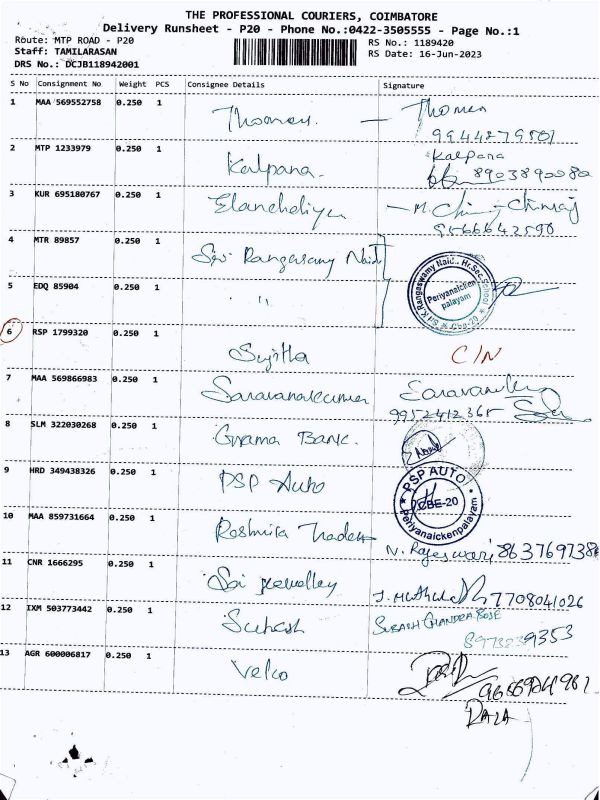 THE PROFESSIONAL COURIERS, COIMBATORE
Delivery Runsheet - P20 - Phone No.:0422-3505555 - Page No.:1
Route: MTP ROAD - P20 RS No.: 1189420
Staff: TAMILARASAN RS Date: 16-Jun-2023
DRS No.: DCJB118942001
S No Consignment No Weight PCS Consignee Details Signature
1 MAA 569552758 0.250 1
Thomas. — Thomas
9944279501
2 MTP 1233979 0.250 1 Kalpana
Kalpana. 8903890080
3 KUR 695180767 0.250 1
— M.
9566642590
4 MTR 89857 0.250 1
Sri Rangasamy Naidu
Sri K Rangaswamy Naidu Hr.Sec.School
Periyanaicken
palayam
Cbe-20
5 EDQ 85904 0.250 1
〃
6 RSP 1799320 0.250 1
Sujitha C/N
7 MAA 569866983 0.250 1
Saravanakumar
9952412365
8 SLM 322030268 0.250 1
Grama Bank.
9 HRD 349438326 0.250 1
PSP Auto
PSP AUTO
CBE-20
Periyanaickenpalayam
10 MAA 859731664 0.250 1
Traders N. Rajeswari 863769738
11 CNR 1666295 0.250 1
Sri Jewellery 7708041026
12 IXM 503773442 0.250 1 SUBASH CHANDRA BOSE
Suhash 9353
13 AGR 600006817 0.250 1
Velco
RAZA